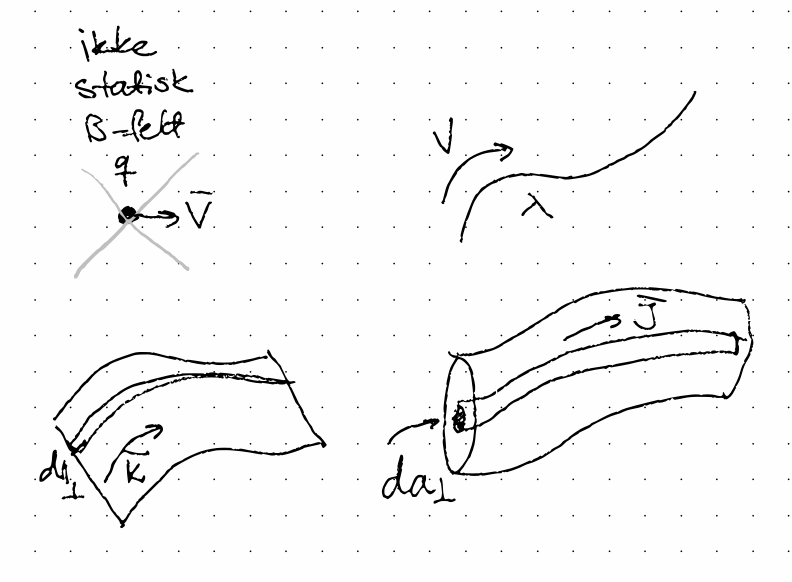 ikke
statisk
B-felt
q
V̄
V
λ
J̄
dl⊥
K̄
da⊥